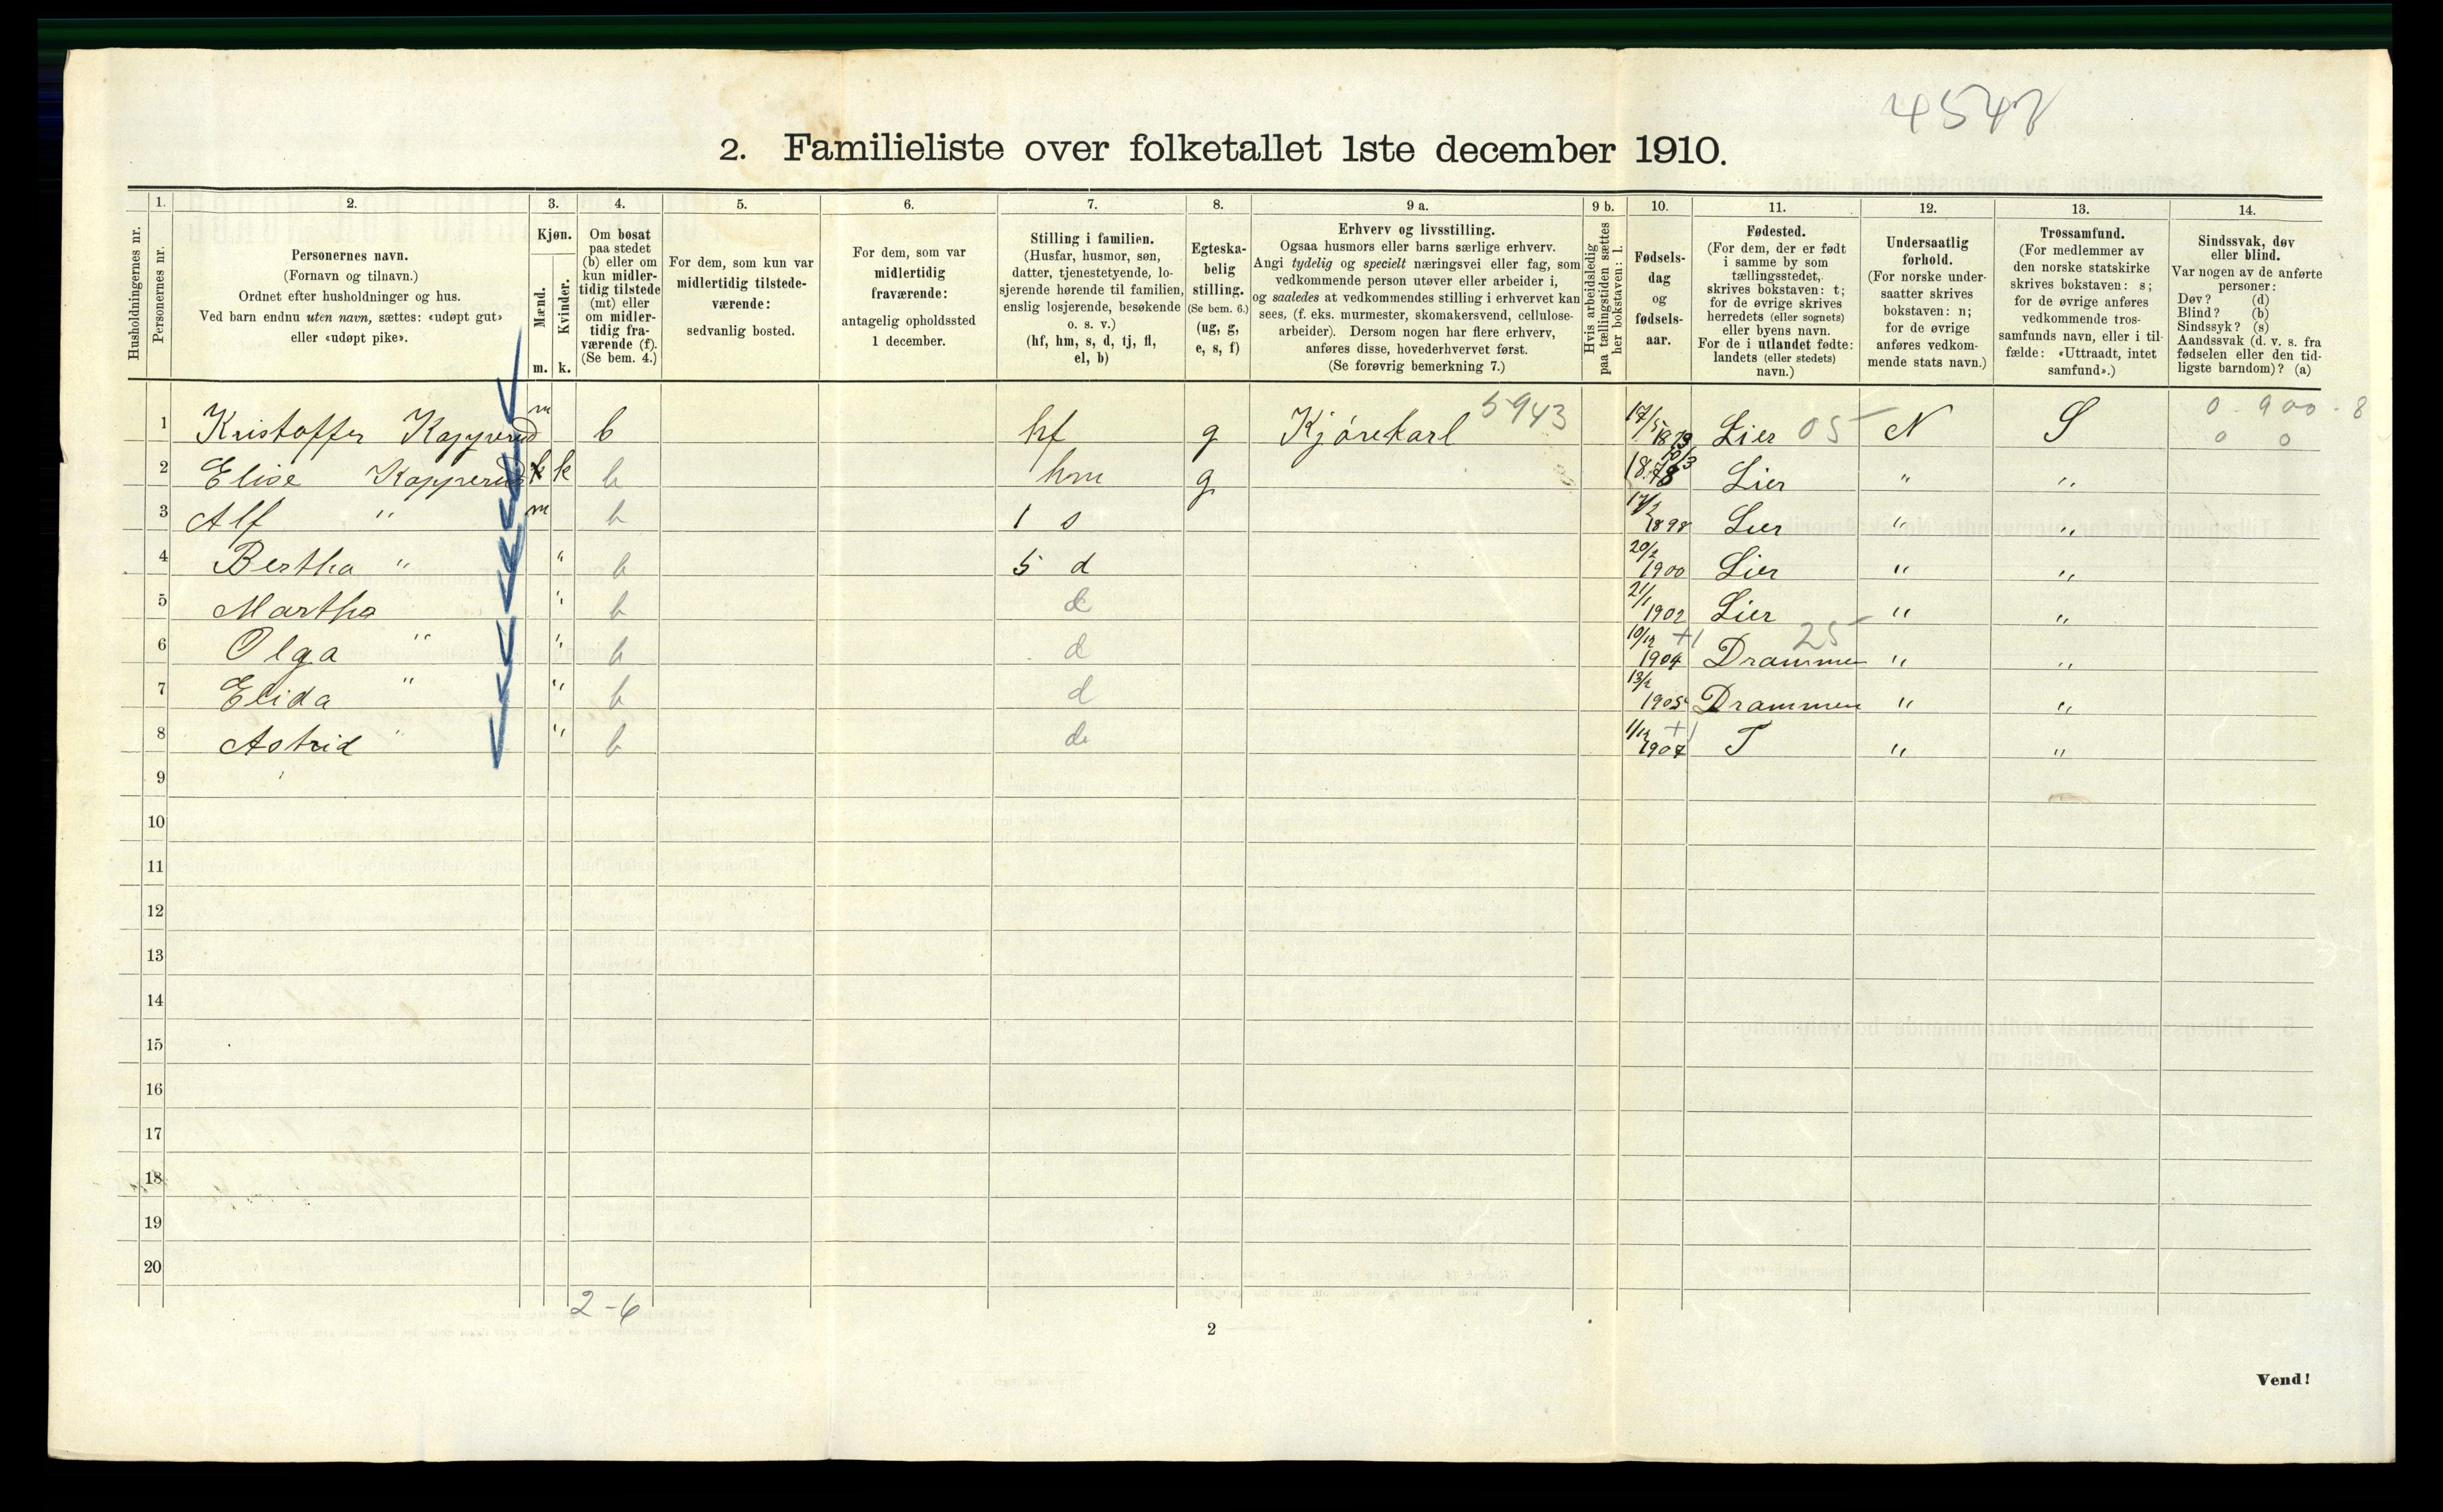 4542
2. Familieliste over folketallet 1ste december 1910.
Husholdningernes nr.
1. Personernes nr.
2.
Personernes navn.
(Fornavn og tilnavn.)
Ordnet efter husholdninger og hus.
Ved barn endnu uten navn, sættes: «udøpt gut»
eller «udøpt pike».
3.
Kjøn.
Mænd. m.
Kvinder. k.
4.
Om bosat
paa stedet
(b) eller om
kun midler-
tidig tilstede
(mt) eller
om midler-
tidig fra-
værende (f).
(Se bem. 4.)
5.
For dem, som kun var
midlertidig tilstede-
værende:
sedvanlig bosted.
6.
For dem, som var
midlertidig
fraværende:
antagelig opholdssted
1 december.
7.
Stilling i familien.
(Husfar, husmor, søn,
datter, tjenestetyende, lo-
sjerende hørende til familien,
enslig losjerende, besøkende
o. s. v.)
(hf, hm, s, d, tj, fl,
el, b)
8.
Egteska-
belig
stilling.
(Se bem. 6.)
(ug, g,
e, s, f)
9 a.
Erhverv og livsstilling.
Ogsaa husmors eller barns særlige erhverv.
Angi tydelig og specielt næringsvei eller fag, som
vedkommende person utøver eller arbeider i,
og saaledes at vedkommendes stilling i erhvervet kan
sees, (f. eks. murmester, skomakersvend, cellulose-
arbeider). Dersom nogen har flere erhverv,
anføres disse, hovederhvervet først.
(Se forøvrig bemerkning 7.)
9 b.
Hvis arbeidsledig
paa tællingstiden sættes
her bokstaven: l.
10.
Fødsels-
dag
og
fødsels-
aar.
11.
Fødested.
(For dem, der er født
i samme by som
tællingsstedet,
skrives bokstaven: t;
for de øvrige skrives
herredets (eller sognets)
eller byens navn.
For de i utlandet fødte:
landets (eller stedets)
navn.)
12.
Undersaatlig
forhold.
(For norske under-
saatter skrives
bokstaven: n;
for de øvrige
anføres vedkom-
mende stats navn.)
13.
Trossamfund.
(For medlemmer av
den norske statskirke
skrives bokstaven: s;
for de øvrige anføres
vedkommende tros-
samfunds navn, eller i til-
fælde: «Uttraadt, intet
samfund».)
14.
Sindssvak, døv
eller blind.
Var nogen av de anførte
personer:
Døv? (d)
Blind? (b)
Sindssyk? (s)
Aandssvak (d. v. s. fra
fødselen eller den tid-
ligste barndom)? (a)
1 Kristoffer Kapperud m b hf g Kjørekarl 5943 17/5 1879 Lier 05 N S 0 . 900 - 8
0 0
2 Elise Kapperud k b hm g 1878 Lier " "
3 Alf " m b 1 s 1898 Lier " "
4 Bertha " " b 5 d 20/2 1900 Lier " "
5 Martha " b d 21/1 1902 Lier " "
6 Olga " " b d 10/12 +1 1904 Drammen 25 " "
7 Elida " " b d 1905 Drammen " "
8 Astrid " " b d 1/12 +1 1907 T " "
9
10
11
12
13
14
15
16
17
18
19
20
2 - 6
2
Vend!